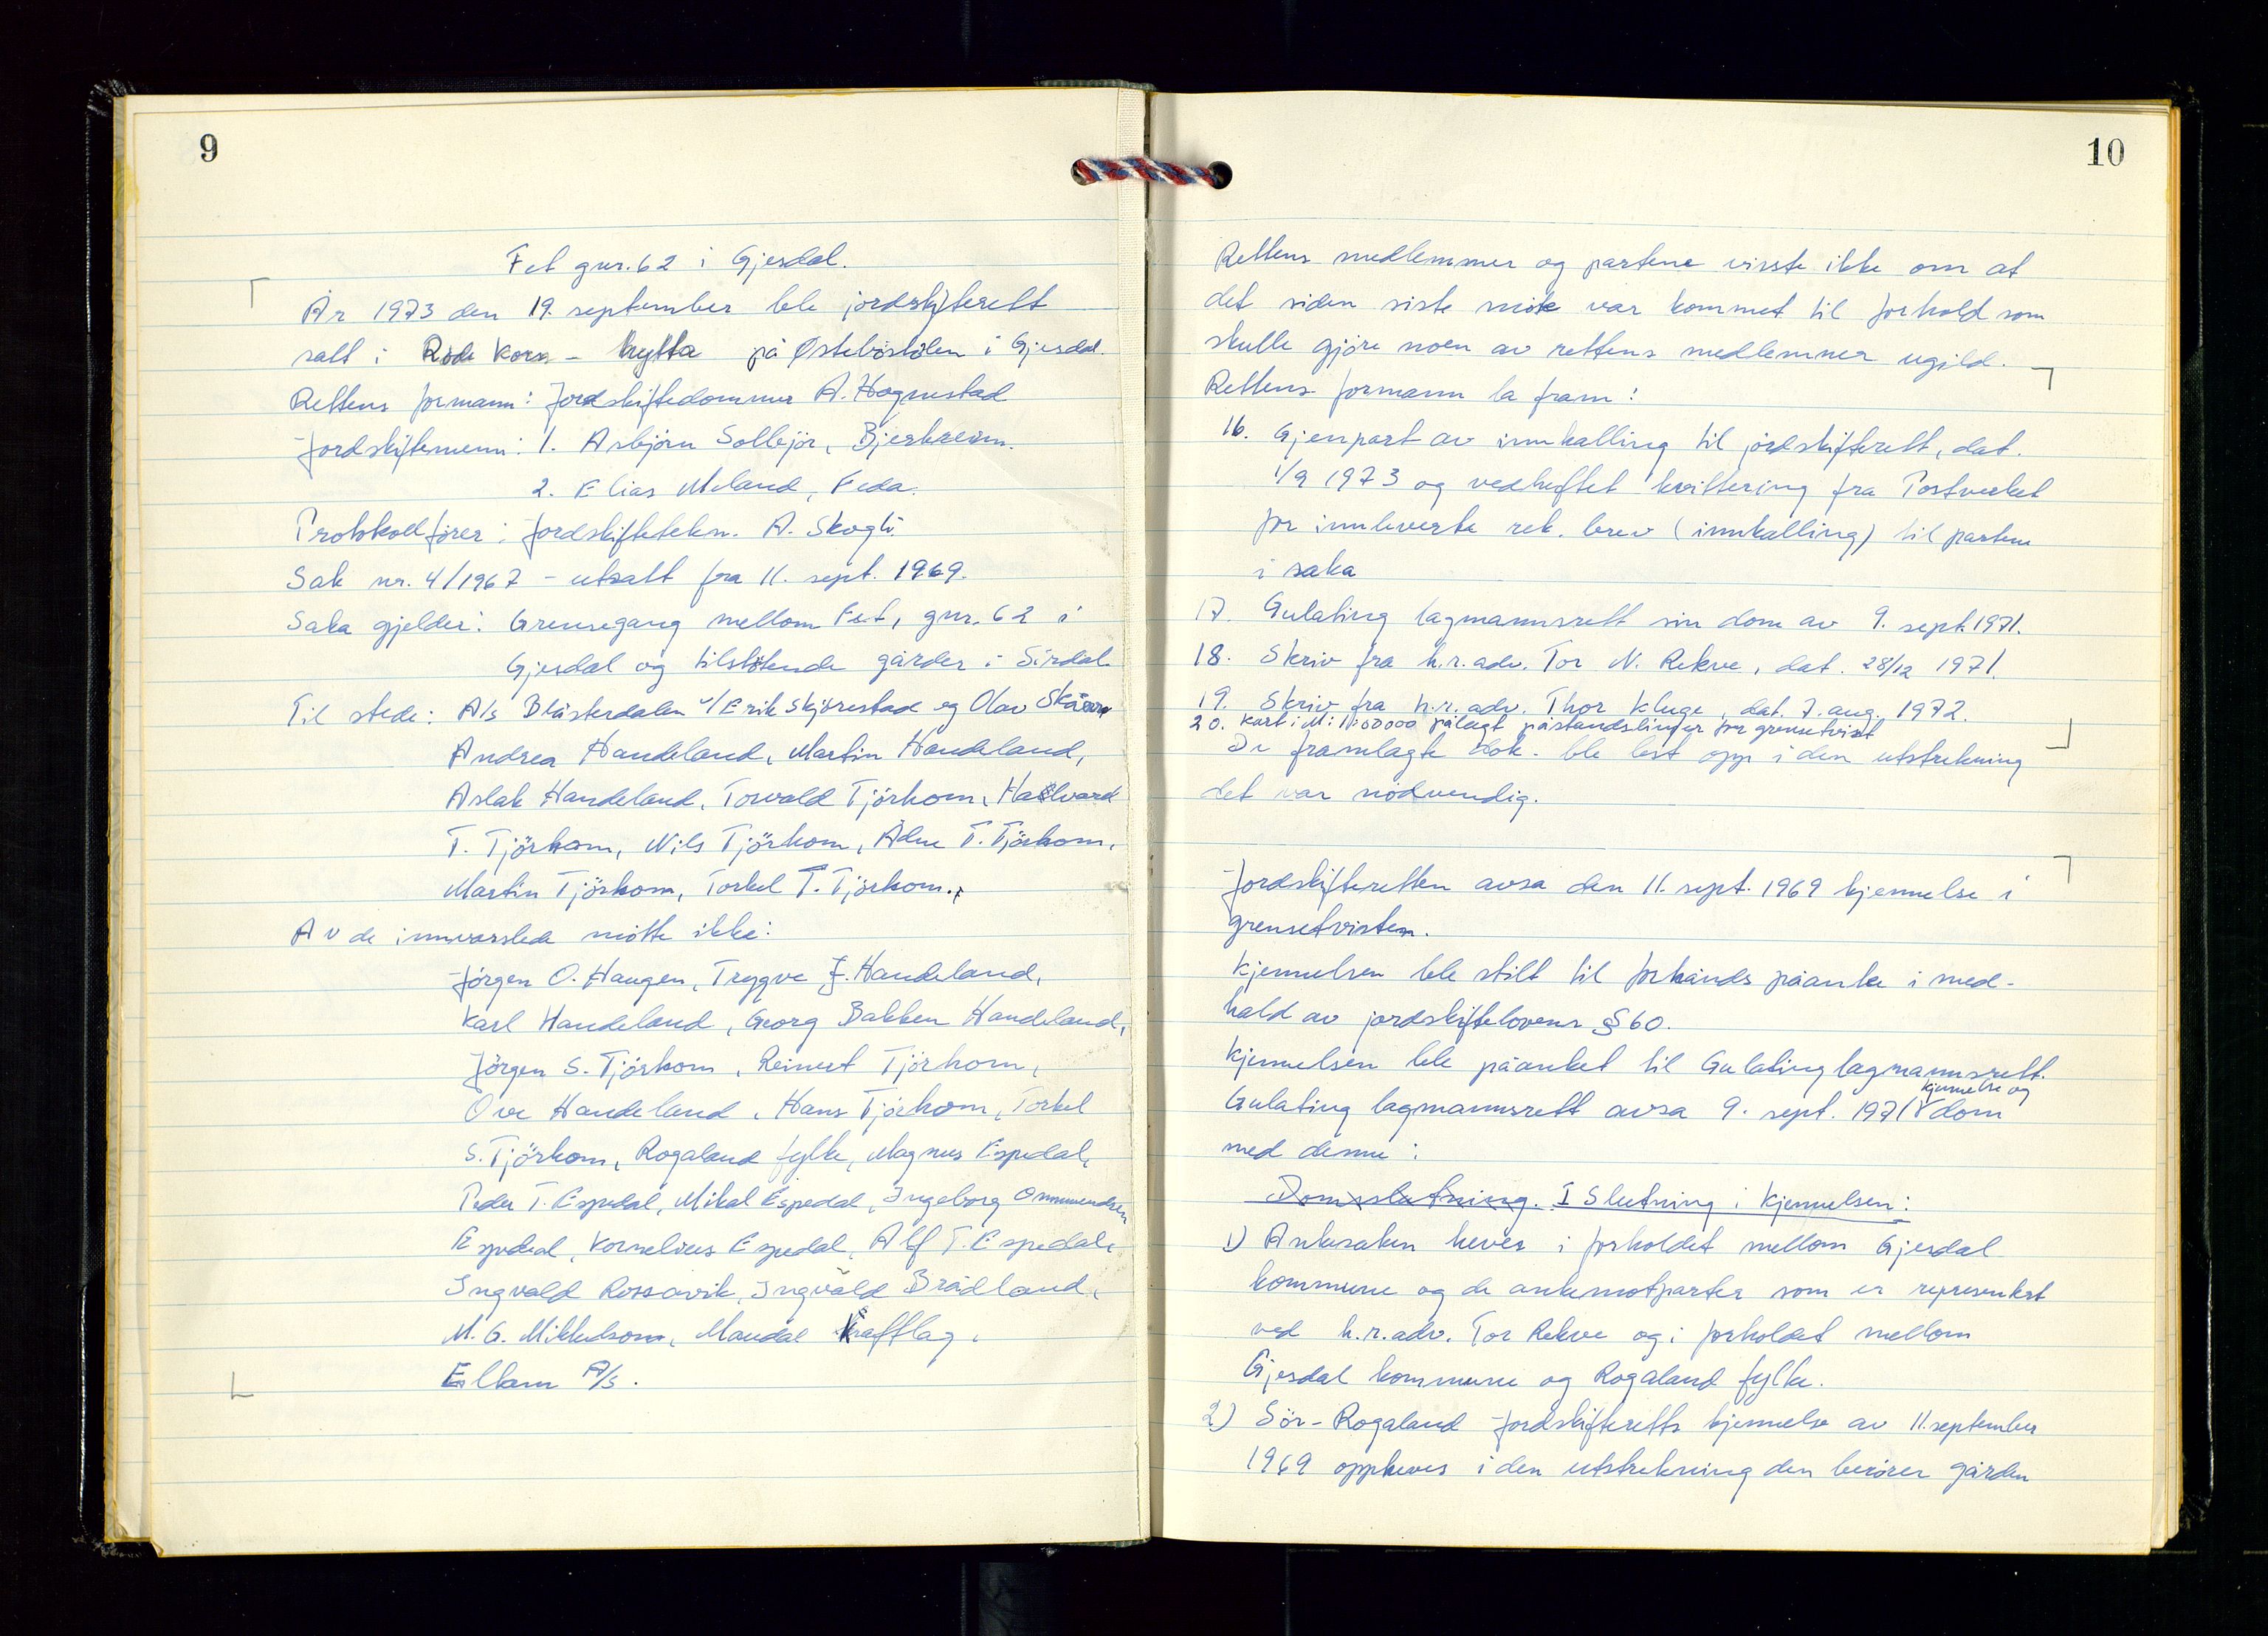 9
Fet gnr. 62 i Gjesdal.
År 1973 den 19. september ble jordskifterett
satt i Røde Kors - hytta på Østeböstölen i Gjesdal.
Rettens formann: Jordskiftedommer A. Hognestad
Jordskiftemenn: 1. Asbjörn Sollesjör, Bjerkreim.
2. Elias Meland, Feda.
Protokollförer: Jordskiftetekn. A. Skogli.
Sak nr. 4/1967 - utsatt fra 11. sept. 1969.
Saka gjelder: Grensegang mellom Fet, gnr. 62 i
Gjesdal og tilstötende gårder i Sirdal.
Til stede: A/s Blåsterdalen v/ Erik Skjörestad og Olav
Andrea Handeland, Martin Handeland,
Aslak Handeland, Torvald Tjörhom, Hallvard
T. Tjörhom, Nils Tjörhom, Ådne T. Tjörhom,
Martin Tjörhom, Torkel T. Tjörhom.
Av de innvarslede mötte ikke:
Jörgen O. Haugen, Trygve J. Handeland,
Karl Handeland, Georg Bakken Handeland,
Jörgen S. Tjörhom, Reinert Tjörhom,
Ove Handeland, Hans Tjörhom, Torkel
S. Tjörhom, Rogaland fylke, Magnus Espedal,
Peder T. Espedal, Mikal Espedal, Ingeborg Ommundsen
Espedal, Kornelius Espedal, Alf T. Espedal,
Ingvald Rossavik, Ingvald Brådland,
M. G. Mikkelsom, Maudal Kraftlag,
Elkem A/s.
10
Rettens medlemmer og partene visste ikke om at
det siden siste möte var kommet til forhold som
skulle gjöre noen av rettens medlemmer ugild.
Rettens formann la fram:
16. Gjenpart av innkalling til jordskifterett, dat.
1/9 1973 og vedheftet kvittering fra Postverket
for innleverte rek. brev (innkalling) til partene
i saka
17. Gulating lagmannsrett sin dom av 9. sept. 1971.
18. Skriv fra h.r.adv. Tor N. Rekve, dat. 28/12 1971.
19. Skriv fra h.r.adv. Thor Kluge, dat. 7. aug. 1972.
20. Kart i M: pålagt påstandslinjer for grensetvist
De framlagte dok. ble lest opp i den utstrekning
det var nödvendig.
Jordskifteretten avsa den 11. sept. 1969 kjennelse i
grensetvisten.
Kjennelsen ble stilt til forhånds påanke i med-
hald av jordskiftelovens § 60.
Kjennelsen ble påanket til Gulating lagmannsrett.
kjennelse og
Gulating lagmannsrett avsa 9. sept. 1971 dom
med denne:
Domsslutning. I Slutning i kjennelsen:
1) Ankesaken heves i forholdet mellom Gjesdal
kommune og de ankemotparter som er representert
ved h.r.adv. Tor Rekve og i forholdet mellom
Gjesdal kommune og Rogaland fylke.
2) Sör-Rogaland jordskifteretts kjennelse av 11. september
1969 oppheves i den utstrekning den berörer gården